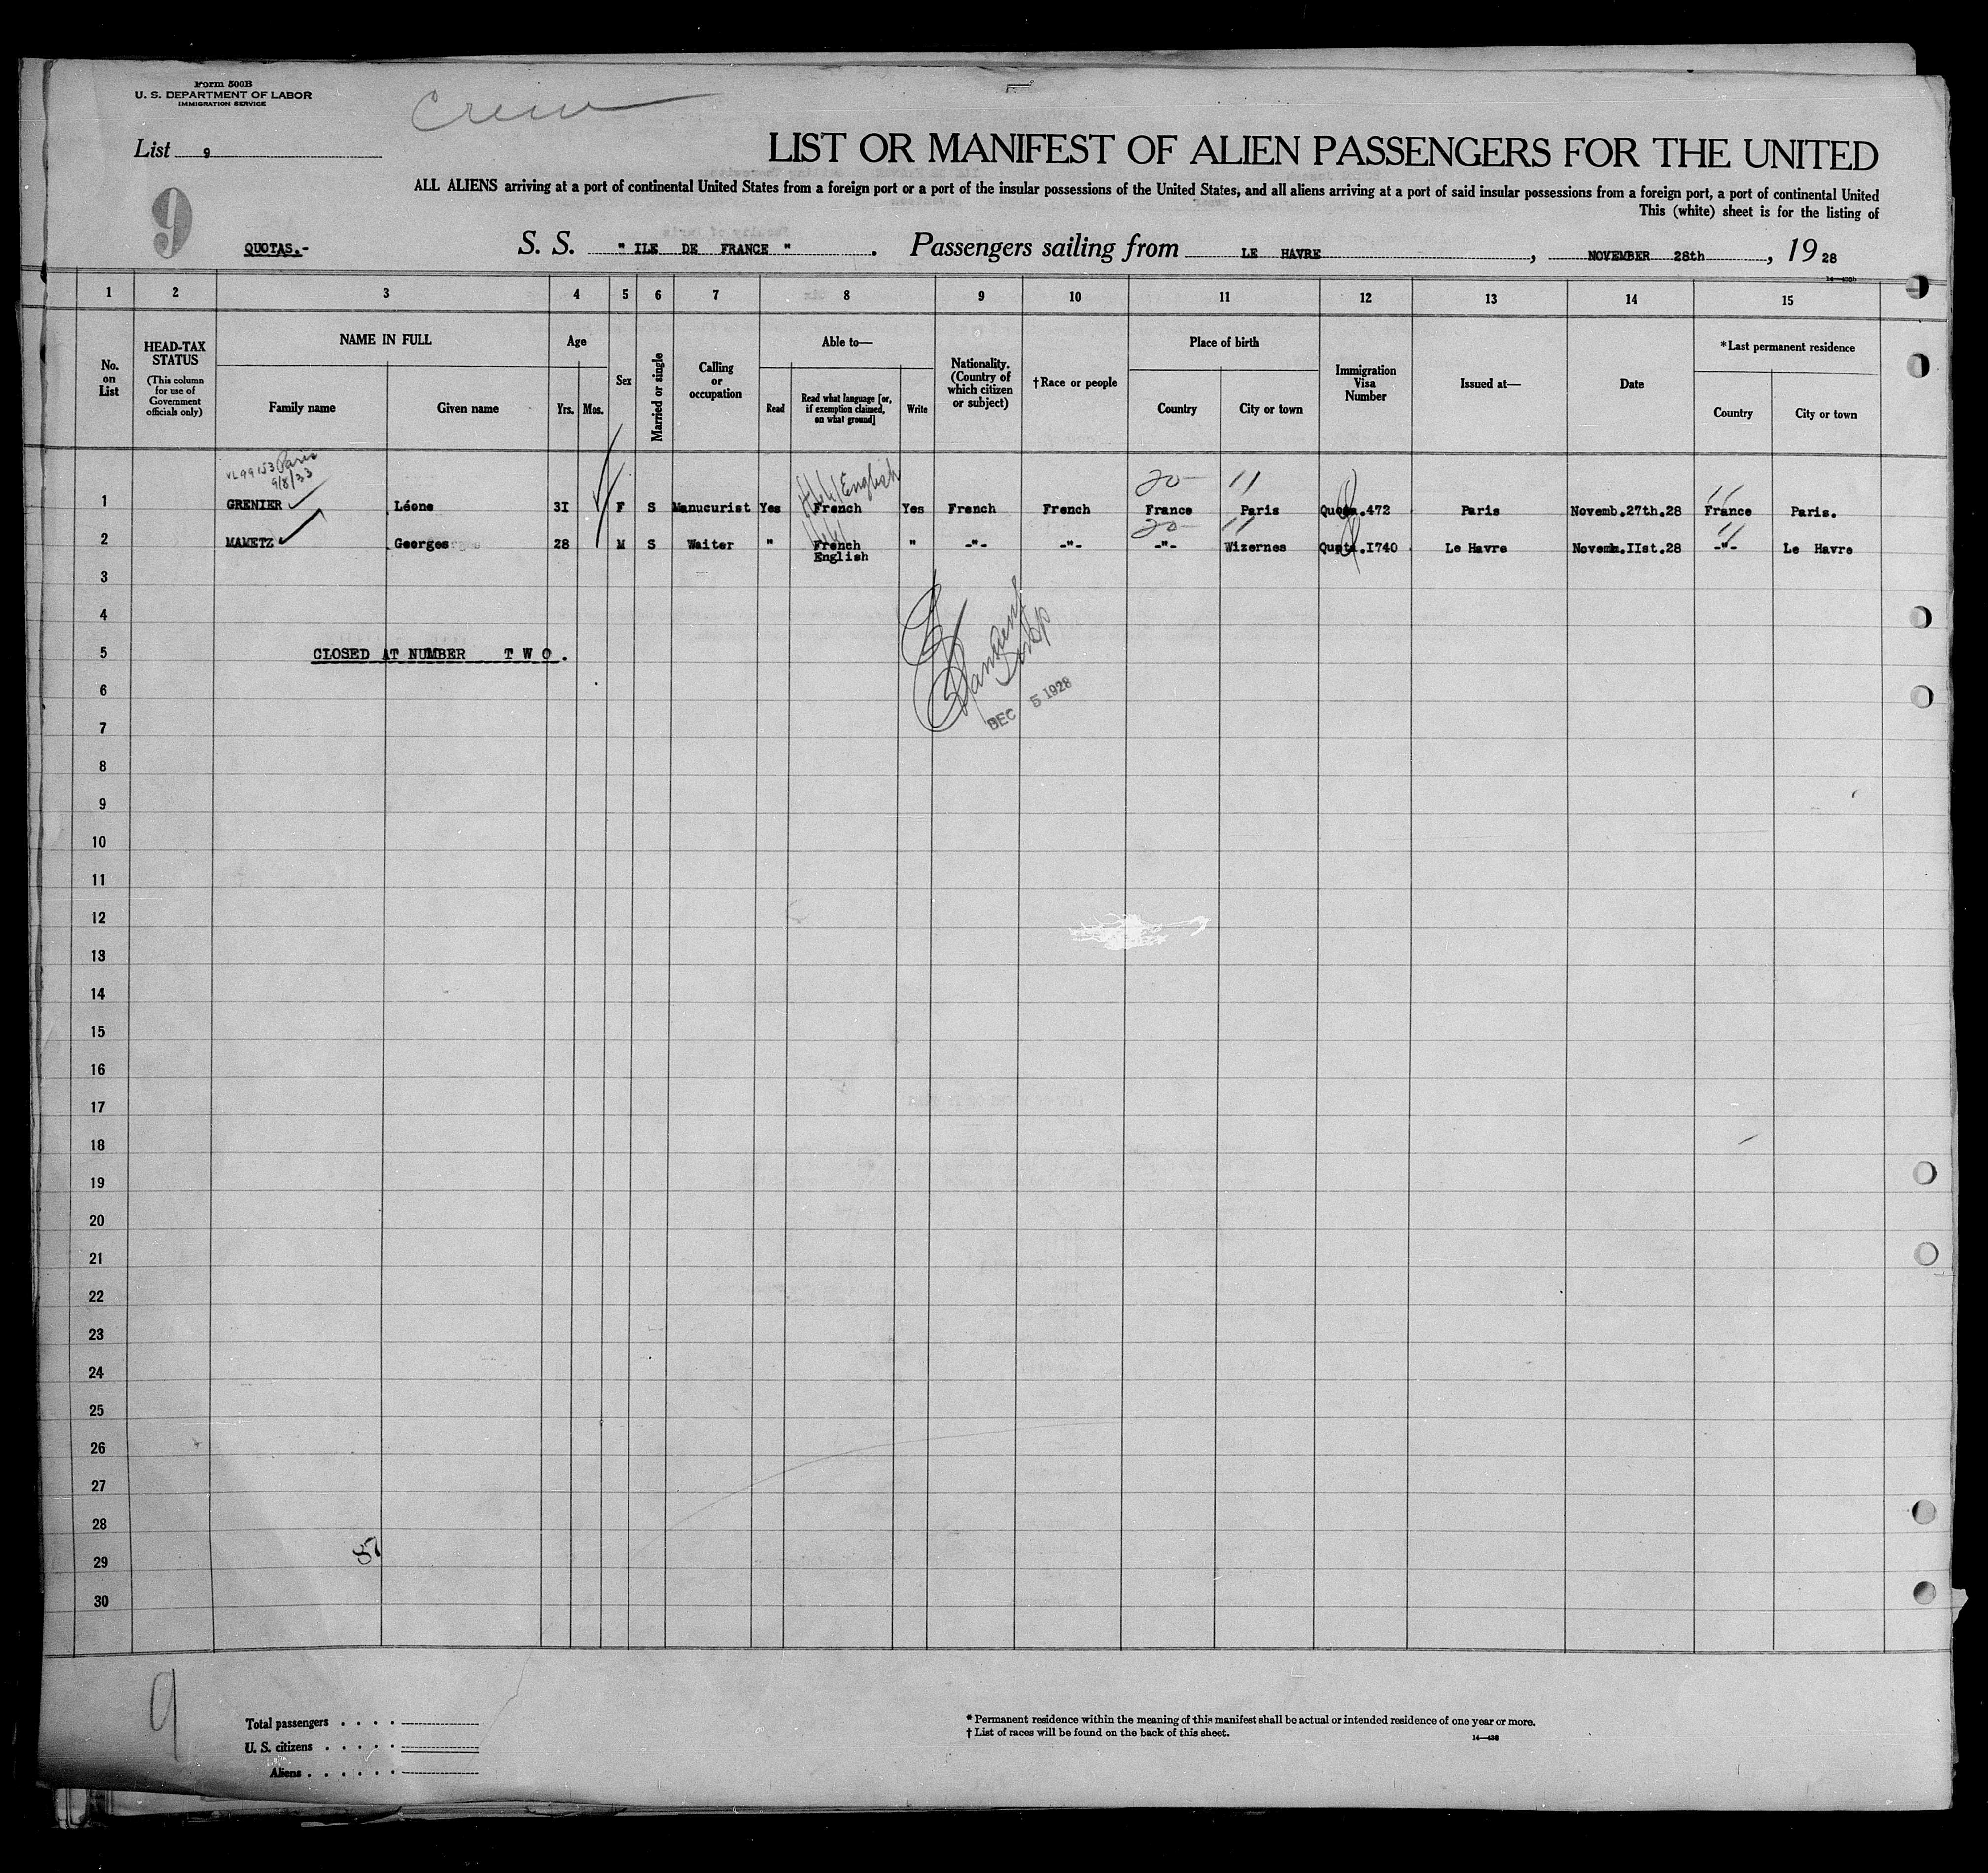 Form 500B
U. S. DEPARTMENT OF LABOR
IMMIGRATION SERVICE
Crew
List 9
9
LIST OR MANIFEST OF ALIEN PASSENGERS FOR THE UNITED
ALL ALIENS arriving at a port of continental United States from a foreign port or a port of the insular possessions of the United States, and all aliens arriving at a port of said insular possessions from a foreign port, a port of continental United
This (white) sheet is for the listing of
QUOTAS.- S. S. " ILE DE FRANCE " . Passengers sailing from LE HAVRE , NOVEMBER 28th , 19 28
1 2 3 4 5 6 7 8 9 10 11 12 13 14 15
No. on List
HEAD-TAX STATUS
(This column for use of Government officials only)
NAME IN FULL
Family name Given name
Age
Yrs. Mos.
Sex
Married or single
Calling or occupation
Able to—
Read
Read what language [or, if exemption claimed, on what ground]
Write
Nationality. (Country of which citizen or subject)
†Race or people
Place of birth
Country City or town
Immigration Visa Number
Issued at—
Date
*Last permanent residence
Country City or town
Paris
9/8/33
English 20 11 11
1 GRENIER Léone 3I F S Manucurist Yes French Yes French French France Paris Quota.472 Paris Novemb.27th.28 France Paris.
20 11 11
2 MAMETZ Georges 28 M S Waiter " French " -"- -"- -"- Wizernes Quota.I740 Le Havre Novemb.IIst.28 -"- Le Havre
English
3
4
5 CLOSED AT NUMBER T W O .
6
DEC 5 1928
7
8
9
10
11
12
13
14
15
16
17
18
19
20
21
22
23
24
25
26
27
28
87
29
30
9
Total passengers . . . .
U. S. citizens . . . . .
Aliens . . . . . .
* Permanent residence within the meaning of this manifest shall be actual or intended residence of one year or more.
† List of races will be found on the back of this sheet.